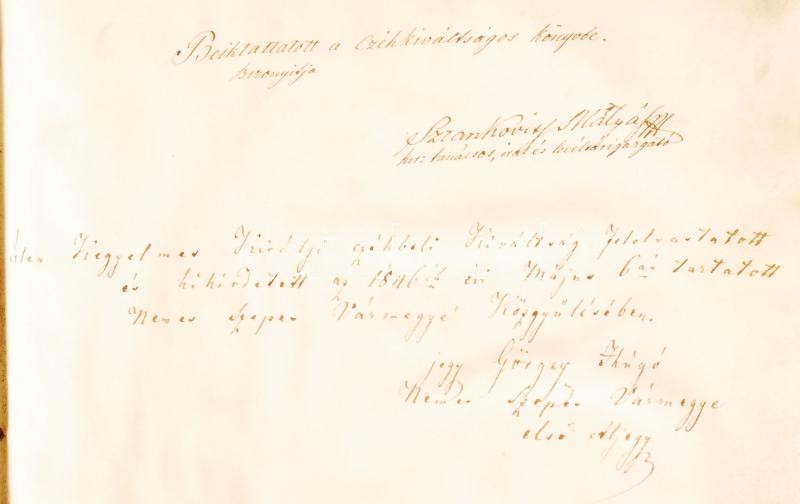 Beiktattatott a czéhkiváltságos könyvbe.
bizonyitja
Szrankovits Mátyás
kir: tanácsos, irat és levéltárigazgató
Kegyelmes Királyi czéhbeli Kiváltság felolvastatott
és kihirdetett az 1846ik évi Május 6án tartatott
Nemes Szepes Vármegye Közgyülésében.
jegy Görgey Hugó
Nemes Szepes Vármegye
első Aljegy